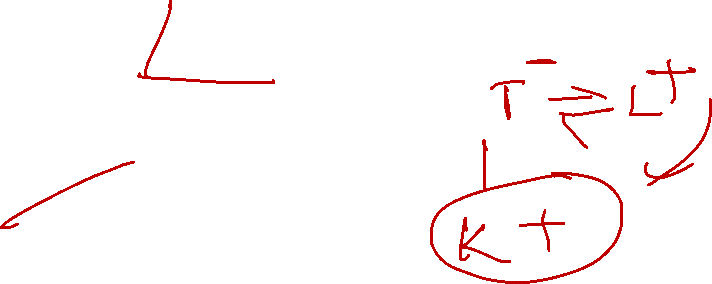 T⁻ ⇌ L⁺
K +